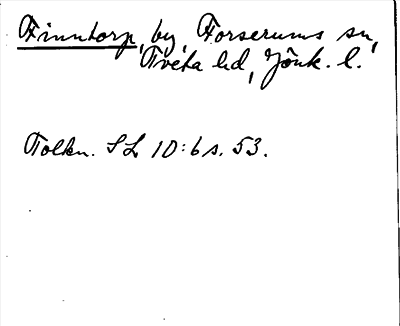 Finntorp, by, Forserums sn,
Tveta hd, Jönk. l.
Tolkn. SL 10:6 s. 53.